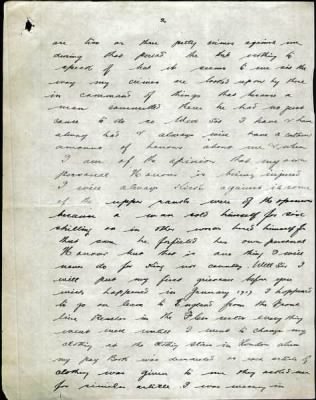 2
are two or three petty crimes against me
during that period the but nothing to
speak of but it seems to me sir the
way my crimes are looked upon by those
in command of things that because a
man committed these he had no just
cause to do so Well Sir I have & have
always had & always will have a certain
amount of honour about me & when
I am of the opinion that my own
personal Honour is being injured
I will always kick against it some
of the upper ranks were of the opinion
because a man sold himself for six
shilling or in other words hired himself for
that sum he forfeited his own personal
Honour but that is one thing I will
never do for King nor country Well Sir I
will put my first grievance before you
which happened in January 1917 I happened
to go on leave to England from the front
line trenches in the everything
went well untill I went to change my
clothing at the clothing store in London when
my pay Book was demanded as each article of
clothing was given to me they asked me
for similar article I was wearing in